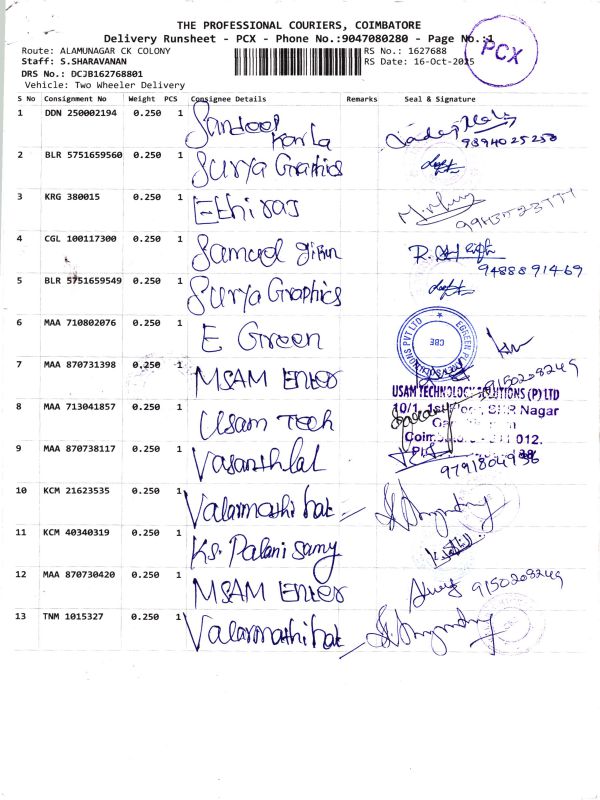 THE PROFESSIONAL COURIERS, COIMBATORE
Delivery Runsheet - PCX - Phone No.:9047080280 - Page No.:1
PCX
Route: ALAMUNAGAR CK COLONY
RS No.: 1627688
Staff: S.SHARAVANAN
RS Date: 16-Oct-2025
DRS No.: DCJB162768801
Vehicle: Two Wheeler Delivery
S No Consignment No Weight PCS Consignee Details Remarks Seal & Signature
1 DDN 250002194 0.250 1 Sandeep Karla
9394025250
2 BLR 5751659560 0.250 1 Surya Graphics
3 KRG 380015 0.250 1 Ethiraj
4 CGL 100117300 0.250 1 Samuel
9488891469
5 BLR 5751659549 0.250 1 Surya Graphics
6 MAA 710802076 0.250 1 E Green
CBE
7 MAA 870731398 0.250 1 MSAM Enter
9150208249
USAM TECHNOLOGY SOLUTIONS (P) LTD
8 MAA 713041857 0.250 1 Usam Tech
10/1, Nagar
012.
9 MAA 870738117 0.250 1 Vasanthlal
10 KCM 21623535 0.250 1 Valarmathi
11 KCM 40340319 0.250 1 Ks. Palani Samy
12 MAA 870730420 0.250 1 MSAM Enter
9150208249
13 TNM 1015327 0.250 1 Valarmathi